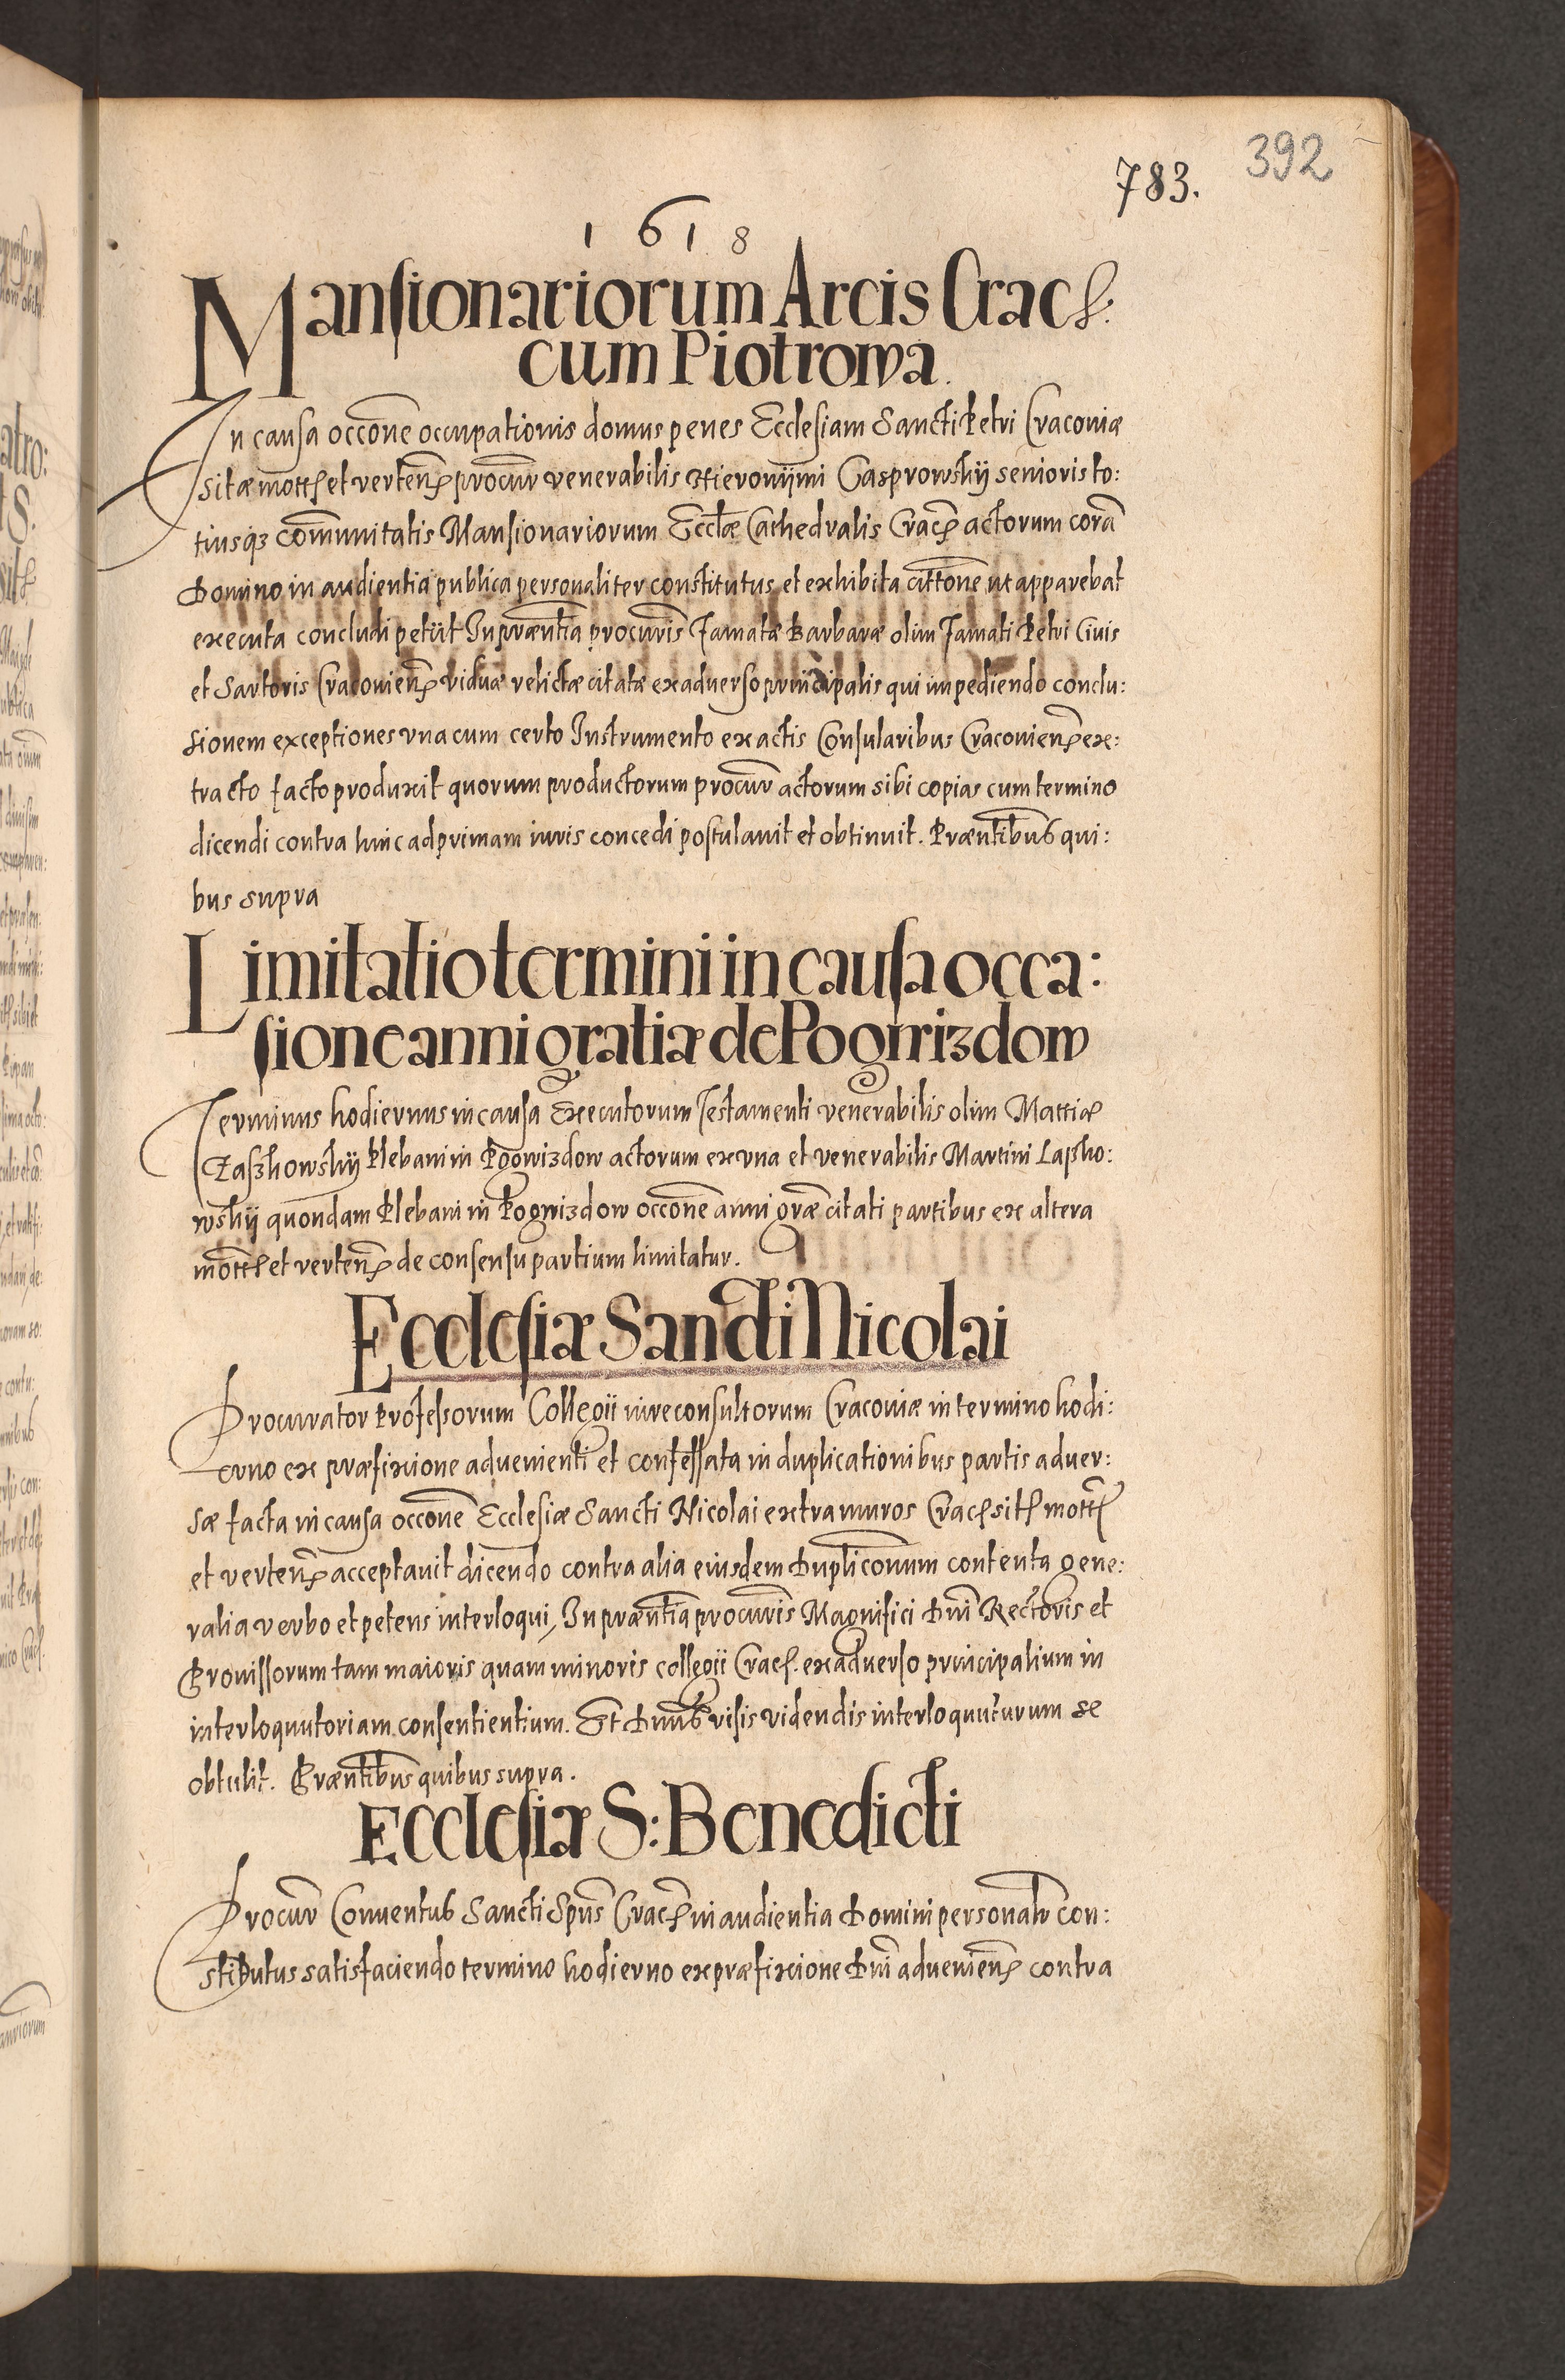 392
783.
1618
Mansionariorum Arcis Crac:
cum Piotrowa.
In causa occōne occupationis domus penes Ecclesiam Sancti Petri Cracoviæ
sitæ mott et verteñ procur venerabilis Hieronijmi Gasprowskij senioris to:
tiusq3 cōmunitatis Mansionariorum Ecctæ Cathedralis Crac actorum corā
Domino in audientia publica personaliter constitutus et exhibita cittōne ut apparebat
executa concludi petiit In præntia procuris Famatæ Barbaræ olim Famati Petri Ciuis
et Sartoris Cracovieñ viduæ relictæ citatæ ex adverso principalis qui impediendo conclu:
sionem exceptiones vna cum certo Instrumento ex actis Consularibus Cracovieñ ex:
tracto facto produxit quorum productorum procur actorum sibi copias cum termino
dicendi contra hinc ad primam iuris concedi postulauit et obtinuit. Præntibus qui:
bus supra
Limitatio termini in causa occa:
sione anni gratiæ de Pogwizdow
Terminus hodiernus in causa Executorum Testamenti venerabilis olim Mattiæ
Zaszkowskij Plebani in Pogwizdow actorum ex vna et venerabilis Martini Lapko:
wskij quondam Plebani in Pogwizdow occōne anni græ citati partibus ex altera
mott et verteñ de consensu partium limitatur.
Ecclesiæ Sancti Nicolai
Procurator Professorum Collegii iureconsultorum Cracoviæ in termino hodi:
erno ex præfixione advenienti et confessata in duplicationibus partis adver:
sæ facta in causa occōne Ecclesiæ Sancti Nicolai extra muros Crac sit mott
et verteñ acceptauit dicendo contra alia eiusdem Duplicōnum contenta gene:
ralia verbo et petens interloqui, In præntia procuris Magnifici Dni Rectoris et
Provissorum tam maioris quam minoris collegii Crac. ex adverso principalium in
interloquutoriam consentientium. Et Dnus visis videndis interloquuturum se
obtulit. Præntibus quibus supra.
Ecclesiæ S: Benedicti
Procur Conventus Sancti Spūs Crac in audientia Domini personalr con:
stitutus satisfaciendo termino hodierno ex præfixione Dni advenieñ contra